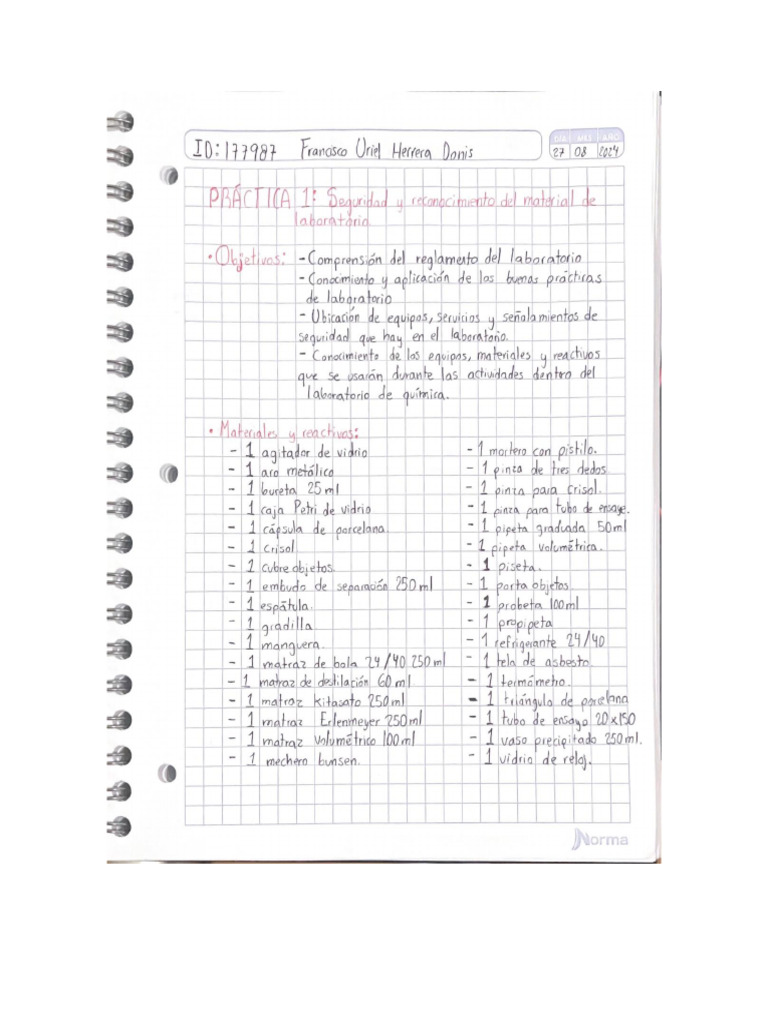 ID: 177987 Francisco Uriel Herrera Donis
DÍA MES AÑO
27 08 2024
PRÁCTICA 1: Seguridad y reconocimiento del material de
laboratorio.
• Objetivos: - Comprensión del reglamento del laboratorio
- Conocimiento y aplicación de las buenas prácticas
de laboratorio
- Ubicación de equipos, servicios y señalamientos de
seguridad que hay en el laboratorio.
- Conocimiento de los equipos, materiales y reactivos
que se usarán durante las actividades dentro del
laboratorio de química.
• Materiales y reactivos:
- 1 agitador de vidrio
- 1 aro metálico
- 1 bureta 25 ml
- 1 caja Petri de vidrio
- 1 cápsula de porcelana.
- 1 crisol
- 1 cubre objetos.
- 1 embudo de separación 250 ml
- 1 espátula.
- 1 gradilla
- 1 manguera.
- 1 matraz de bola 24/40 250 ml
- 1 matraz de destilación 60 ml
- 1 matraz kitasato 250 ml
- 1 matraz Erlenmeyer 250 ml
- 1 matraz volumétrico 100 ml
- 1 mechero bunsen.
- 1 mortero con pistilo.
- 1 pinza de tres dedos
- 1 pinza para crisol.
- 1 pinza para tubo de ensaye.
- 1 pipeta graduada 50 ml
- 1 pipeta volumétrica.
- 1 piseta.
- 1 porta objetos
- 1 probeta 100 ml
- 1 propipeta
- 1 refrigerante 24/40
- 1 tela de asbesto.
- 1 termómetro.
- 1 triángulo de porcelana
- 1 tubo de ensayo 20x150
- 1 vaso precipitado 250 ml.
- 1 vidrio de reloj.
Norma